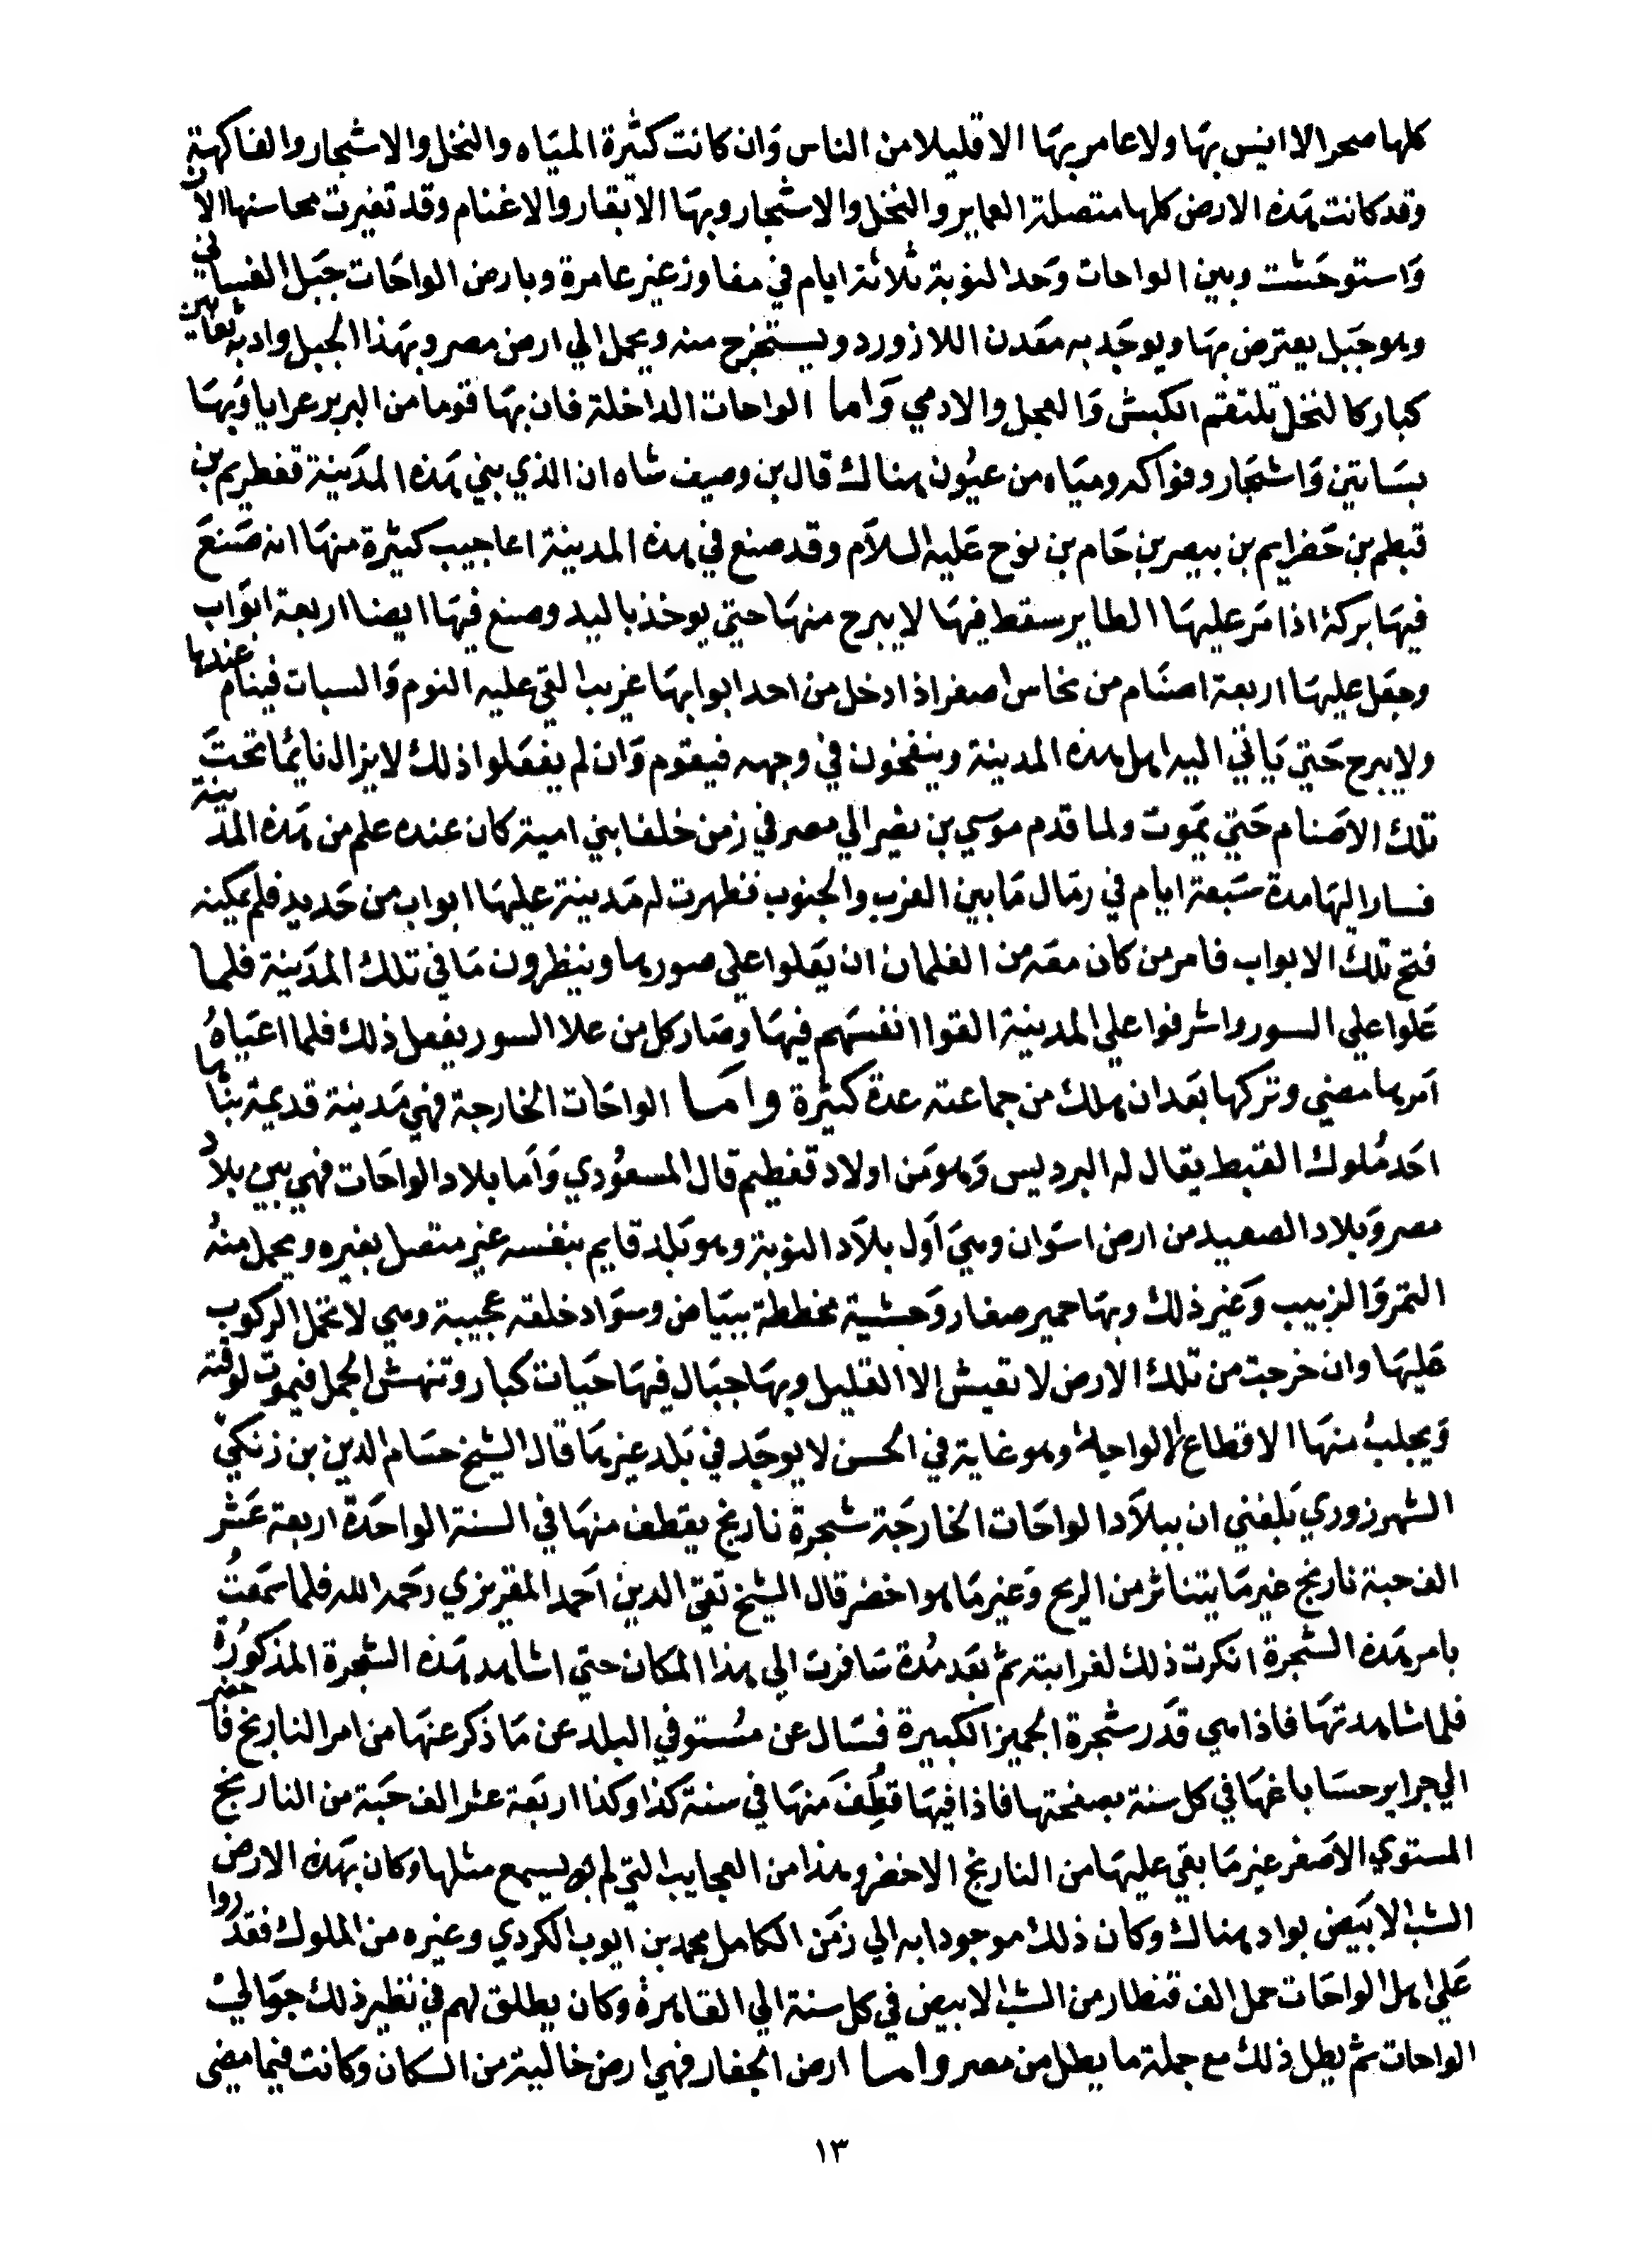 كلها صحرا لا انيس بها ولا عامر بها الا قليلا من الناس وان كانت كثيرة المياه والنخل والاشجار والفاكهة
وقد كانت هذه الارض كلها متصلة العماير والنخل والاشجار وبها الابقار والاغنام وقد تغيرت محاسنها الان
واستوحشت وبين الواحات وحد النوبة ثلاثة ايام في مفاوز غير عامرة وبارض الواحات جبل الفساني
وهو جبل يعترض بها ويوجد به معدن اللازورد ويستخرج منه ويحمل الي ارض مصر وبهذا الجبل واد به ثعابين
كبار كالنخل تلتقم الكبش والعجل والادمي واما الواحات الداخلة فان بها قوما من البربر عرايا وبها
بساتين واشجار وفواكه ومياه من عيون هناك قال بن وصيف شاه ان الذي بني هذه المدينة قفطريم بن
قبطم بن حفرايم بن بيصر بن حام بن نوح عليه السلام وقد صنع في هذه المدينة اعاجيب كثيرة منها انه صنع
فيها بركة اذا مر عليها الطاير سقط فيها لا يبرح منها حتي يوخذ باليد وصنع فيها ايضا اربعة ابواب
وجعل عليها اربعة اصنام من نحاس اصفر اذا دخل من احد ابوابها غريب القي عليه النوم والسبات فينام عندها
ولا يبرح حتي ياتي اليه اهل هذه المدينة وينفخون في وجهه فيقوم وان لم يفعلوا ذلك لا يزال نايما تحت
تلك الاصنام حتي يموت ولما قدم موسي بن نصير الي مصر في زمن خلفا بني امية كان عنده علم من هذه المدينة
فسار اليها مدة سبعة ايام في رمال ما بين الغرب والجنوب فظهرت له مدينة عليها ابواب من حديد فلم يمكنه
فتح تلك الابواب فامر من كان معه من الغلمان ان يعلوا علي صورها وينظرون ما في تلك المدينة فلما
علوا علي السور واشرفوا علي المدينة القوا انفسهم فيها وصار كل من علا السور يفعل ذلك فلما اعياه
امرها مضي وتركها بعد ان هلك من جماعته عدة كثيرة واما الواحات الخارجة فهي مدينة قديمة بناها
احد ملوك القبط يقال له البردليس وهو من اولاد قفطيم قال المسعودي واما بلاد الواحات فهي بين بلاد
مصر وبلاد الصعيد من ارض اسوان وهي اول بلاد النوبة وهو بلد قايم بنفسه غير متصل بغيره ويحمل منه
التمر والزبيب وغير ذلك وبها حمير صغار وحشية مخططة ببياض وسواد خلقه عجيبة وهي لا تحمل الركوب
عليها وان خرجت من تلك الارض لا تعيش الا القليل وبها جبال فيها حيات كبار وتنهش الجمل فيموت لوقته
ويجلب منها الاقطاع الواحية وهو غاية في الحسن لا يوجد في بلد غيرها قال الشيخ حسام الدين بن زنكي
الشهرزوري بلغني ان ببلاد الواحات الخارجة شجرة نارنج يقطف منها في السنة الواحدة اربعة عشر
الف حبة نارنج غير ما يتناثر من الريح وغير ما هو اخضر قال الشيخ تقي الدين احمد المقريزي رحمه الله فلما سمعت
بامر هذه الشجرة انكرت ذلك لغرابته ثم بعد مدة سافرت الي هذا المكان حتي اشاهد هذه الشجرة المذكورة
فلما شاهدتها فاذا هي قدر شجرة الجميز الكبيرة فسال عن مستوفي البلد عن ما ذكر عنها من امر النارنج فاحضر
الي جرايد حسابا عنها في كل سنة بصفحتها فاذا فيها قطف منها في سنة كذا وكذا اربعة عشر الف حبة من النارنج
المستوي الاصفر غير ما بقي عليها من النارنج الاخضر وهذا من العجايب التي لم يسمع مثلها وكان بهذه الارض
الشب الابيض بواد هناك وكان ذلك موجودا به الي زمن الكامل محمد بن ايوب الكردي وغيره من الملوك فقدروا
علي اهل الواحات حمل الف قنطار من الشب الابيض في كل سنة الي القاهرة وكان يطلق لهم في نظير ذلك جوالي
الواحات ثم بطل ذلك مع جملة ما بطل من مصر واما ارض الجفار فهي ارض خالية من السكان وكانت فيما مضى
١٣